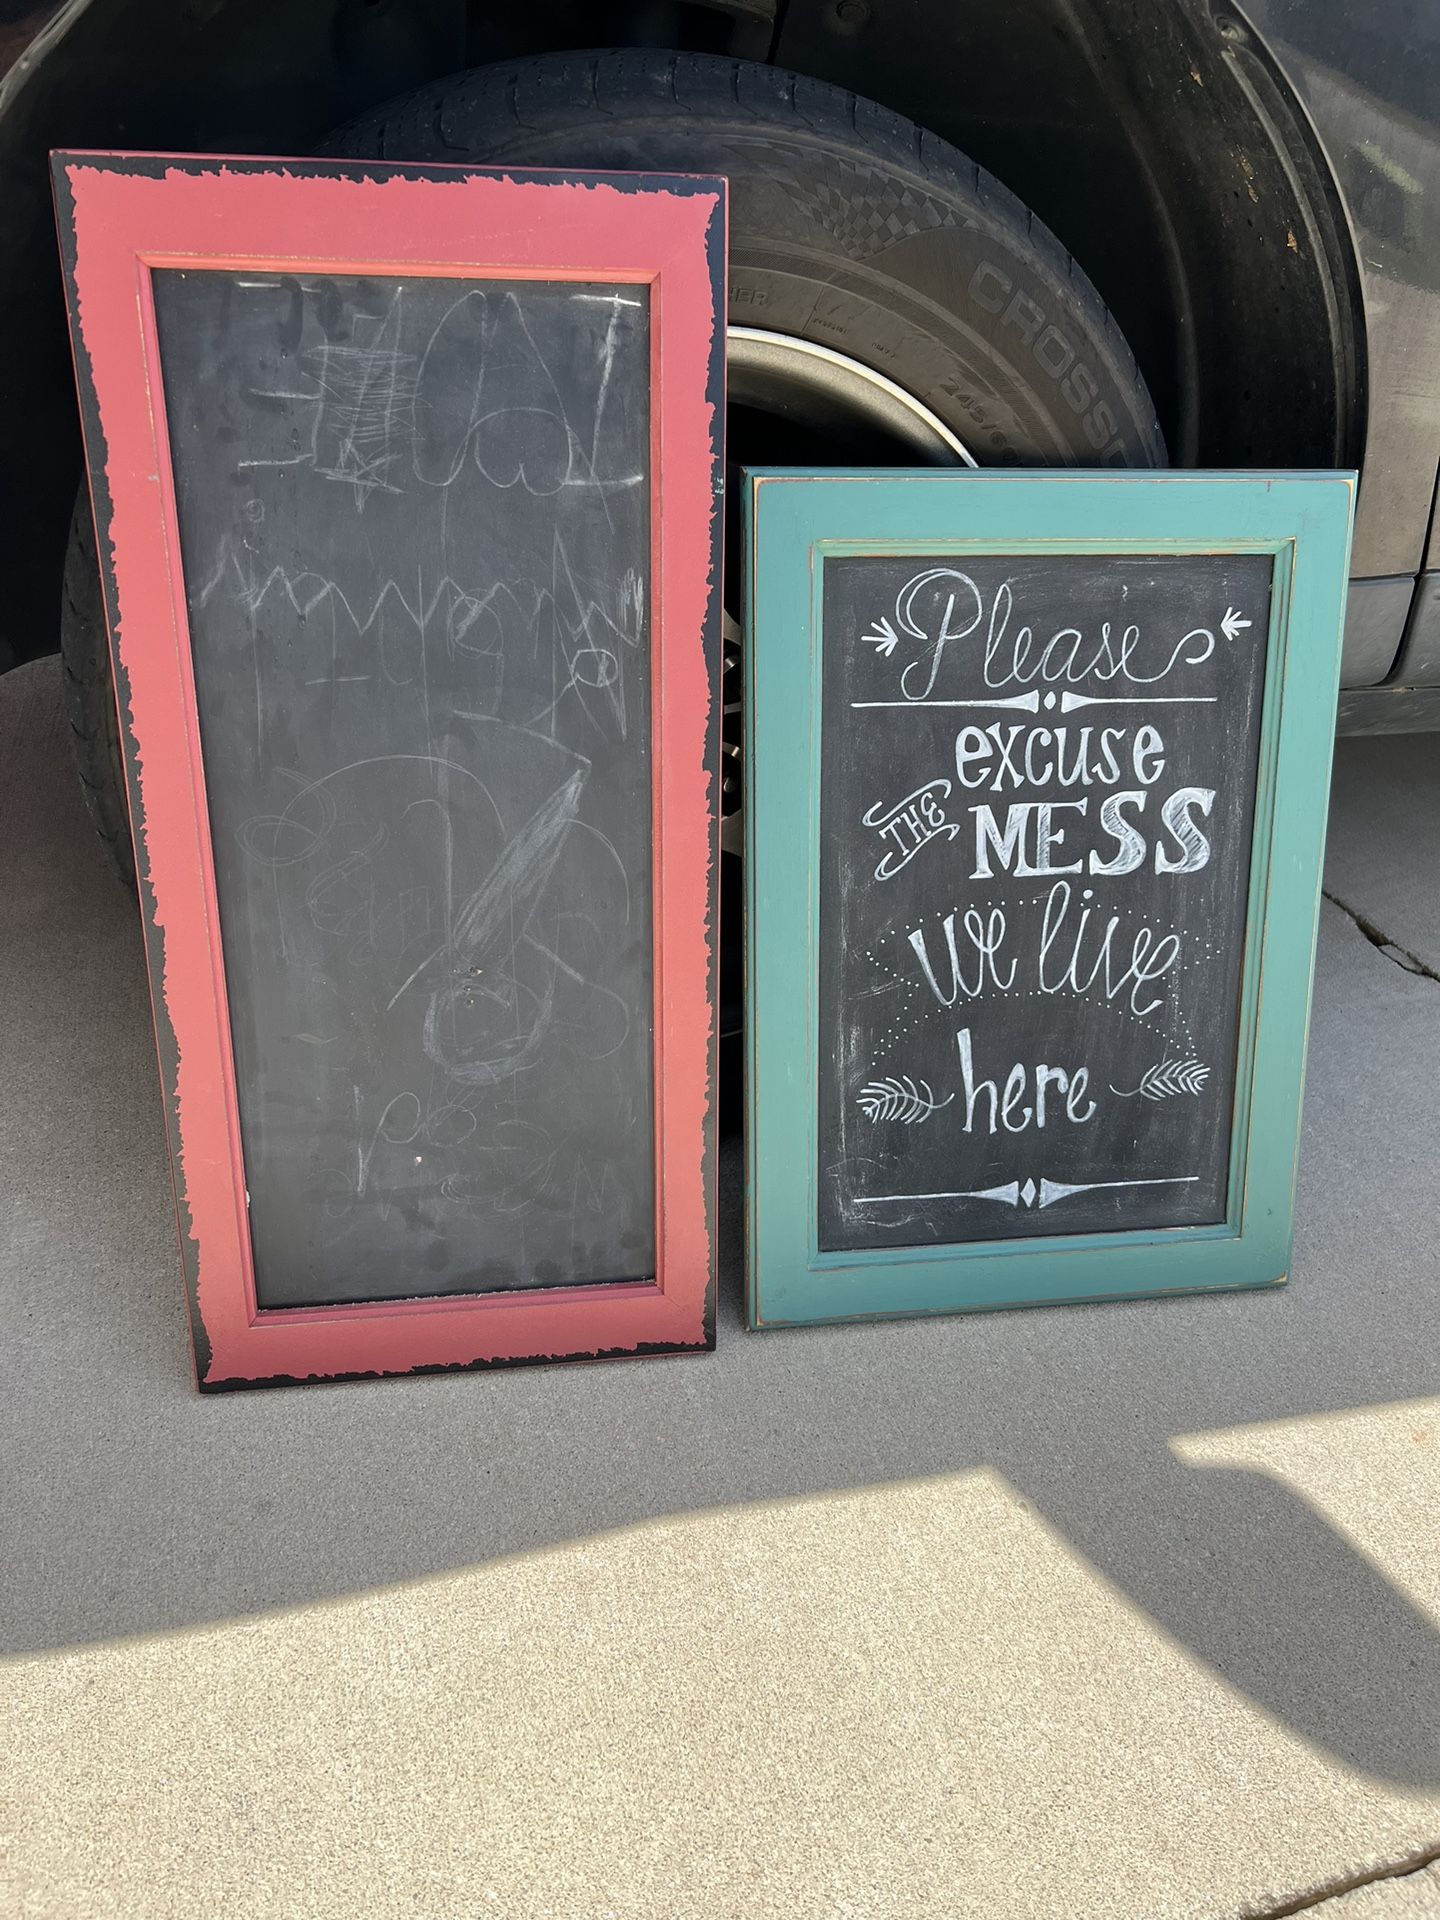 Please
excuse
THE MESS
we live
here
CROSS
245/60